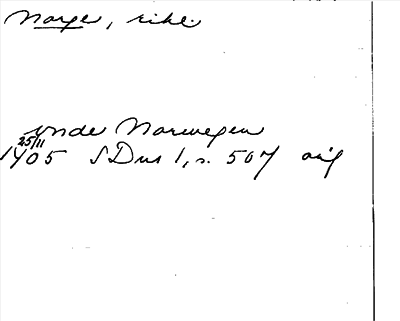 Norge, rike.
vnde Norwegen
25/11
1405 SDns 1, s. 507 orig